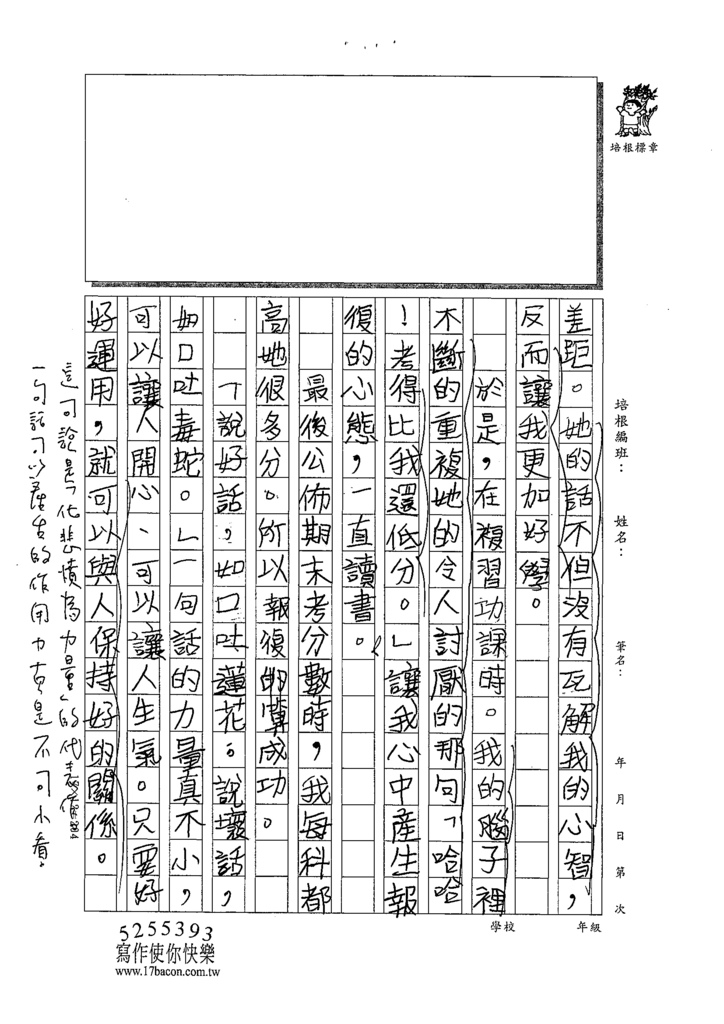 培根標章
培根編班：
姓名：
筆名：
年 月 日 第 次
學校
年級
差距。她的話不但沒有瓦解我的心智，
反而讓我更加好學。
於是，在複習功課時。我的腦子裡
不斷的重複她的令人討厭的那句「哈哈
！考得比我還低分。」讓我心中產生報
復的心態，一直讀書。
最後公佈期末考分數時，我每科都
高她很多分。所以報復的算成功。
「說好話，如口吐蓮花。說壞話，
如口吐毒蛇。」一句話的力量真不小，
可以讓人開心、可以讓人生氣。只要好
好運用，就可以與人保持好的關係。
這可說是「化悲憤為力量」的代表作，
一句話可以產生的作用力真是不可小看。
5255393
寫作使你快樂
www.17bacon.com.tw